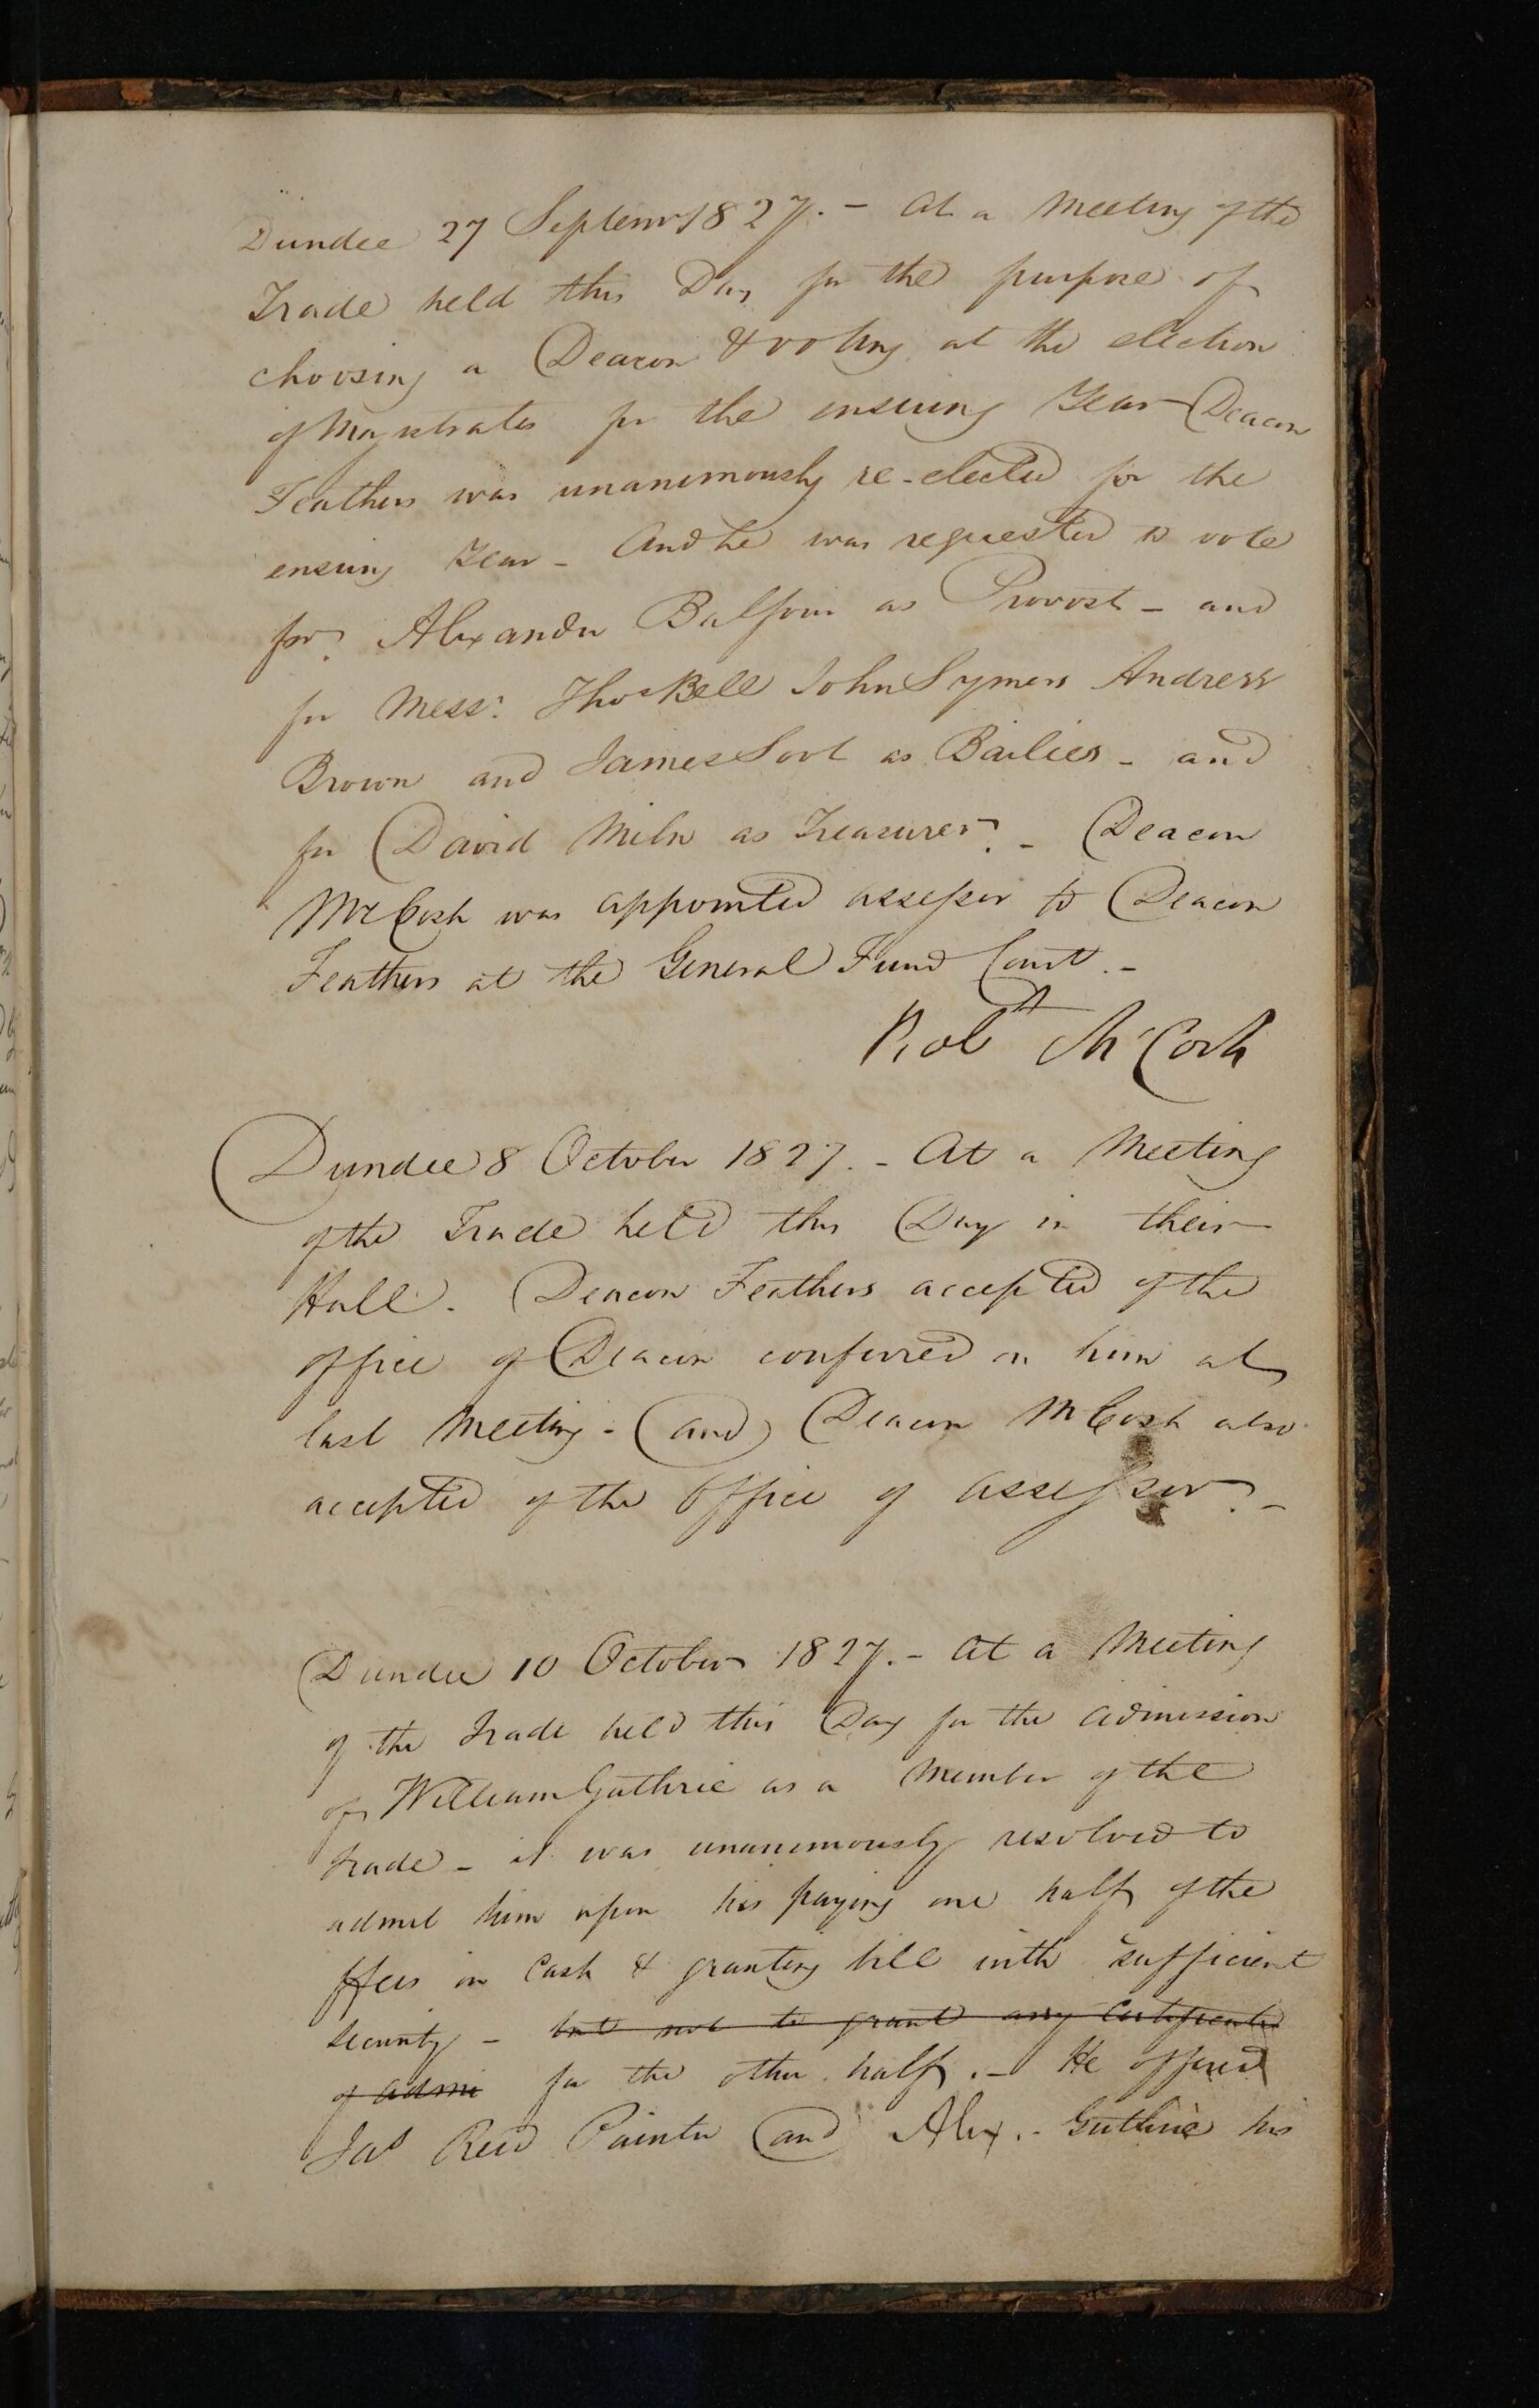 Dundee 27 Septemr 1827. - At a Meeting of the
Trade held this Day for the purpose of
choosing a Deacon & voting at the election
of Magistrates for the ensuing Year Deacon
Feathers was unanimously re-elected for the
ensuing Year - And he was requested to vote
for Alexander Balfour as Provost - and
for Messrs. Thos Bell John Symers Andrew
Brown and James Soot as Bailies - and
for David Miln as Treasurer. - Deacon
McCosh was appointed assessor to Deacon
Feathers at the General Fund Court. -
Robt McCosh
Dundee 8 October 1827. - At a Meeting
of the Trade held this Day in their
Hall. Deacon Feathers accepted of the
office of Deacon conferred on him at
last Meeting - and Deacon McCosh also
accepted of the Office of Assessor. -
Dundee 10 October 1827. - At a Meeting
of the Trade held this Day for the admission
of William Guthrie as a Member of the
trade - it was unanimously resolved to
admit him upon his paying one half of the
ffees in Cash & granting bill with sufficient
security - but not to grant any Certificate
of admi for the other half. - He offered
Jas Reid Painter and Alexr. Guthrie his